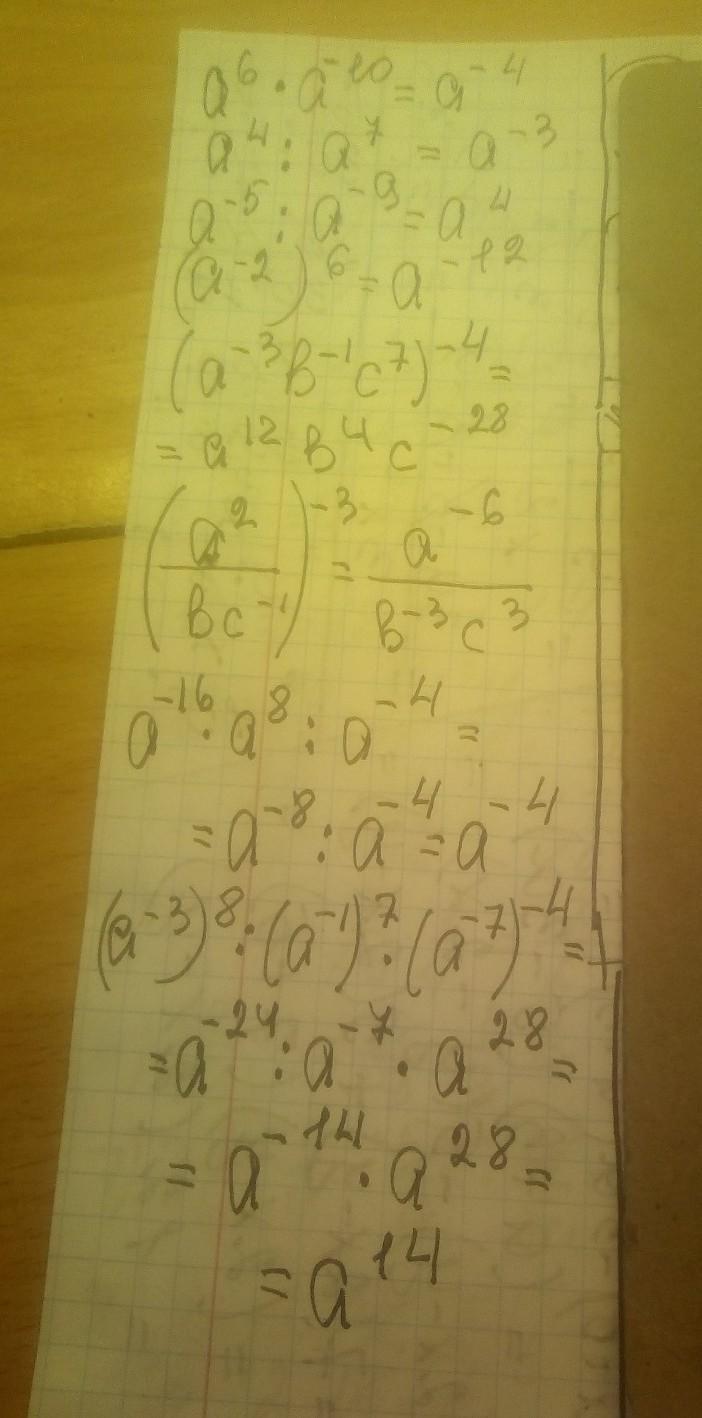 a⁶ · a⁻¹⁰ = a⁻⁴
a⁴ : a⁷ = a⁻³
a⁻⁵ : a⁻⁹ = a⁴
(a⁻²)⁶ = a⁻¹²
(a⁻³в⁻¹c⁷)⁻⁴ =
= a¹² в⁴ c⁻²⁸
(a²/вc⁻¹)⁻³ = a⁻⁶/в⁻³c³
a⁻¹⁶ · a⁸ : a⁻⁴ =
= a⁻⁸ : a⁻⁴ = a⁻⁴
(a⁻³)⁸ : (a⁻¹)⁷ · (a⁻⁷)⁻⁴ =
= a⁻²⁴ : a⁻⁷ · a²⁸ =
= a⁻¹⁴ · a²⁸ =
= a¹⁴